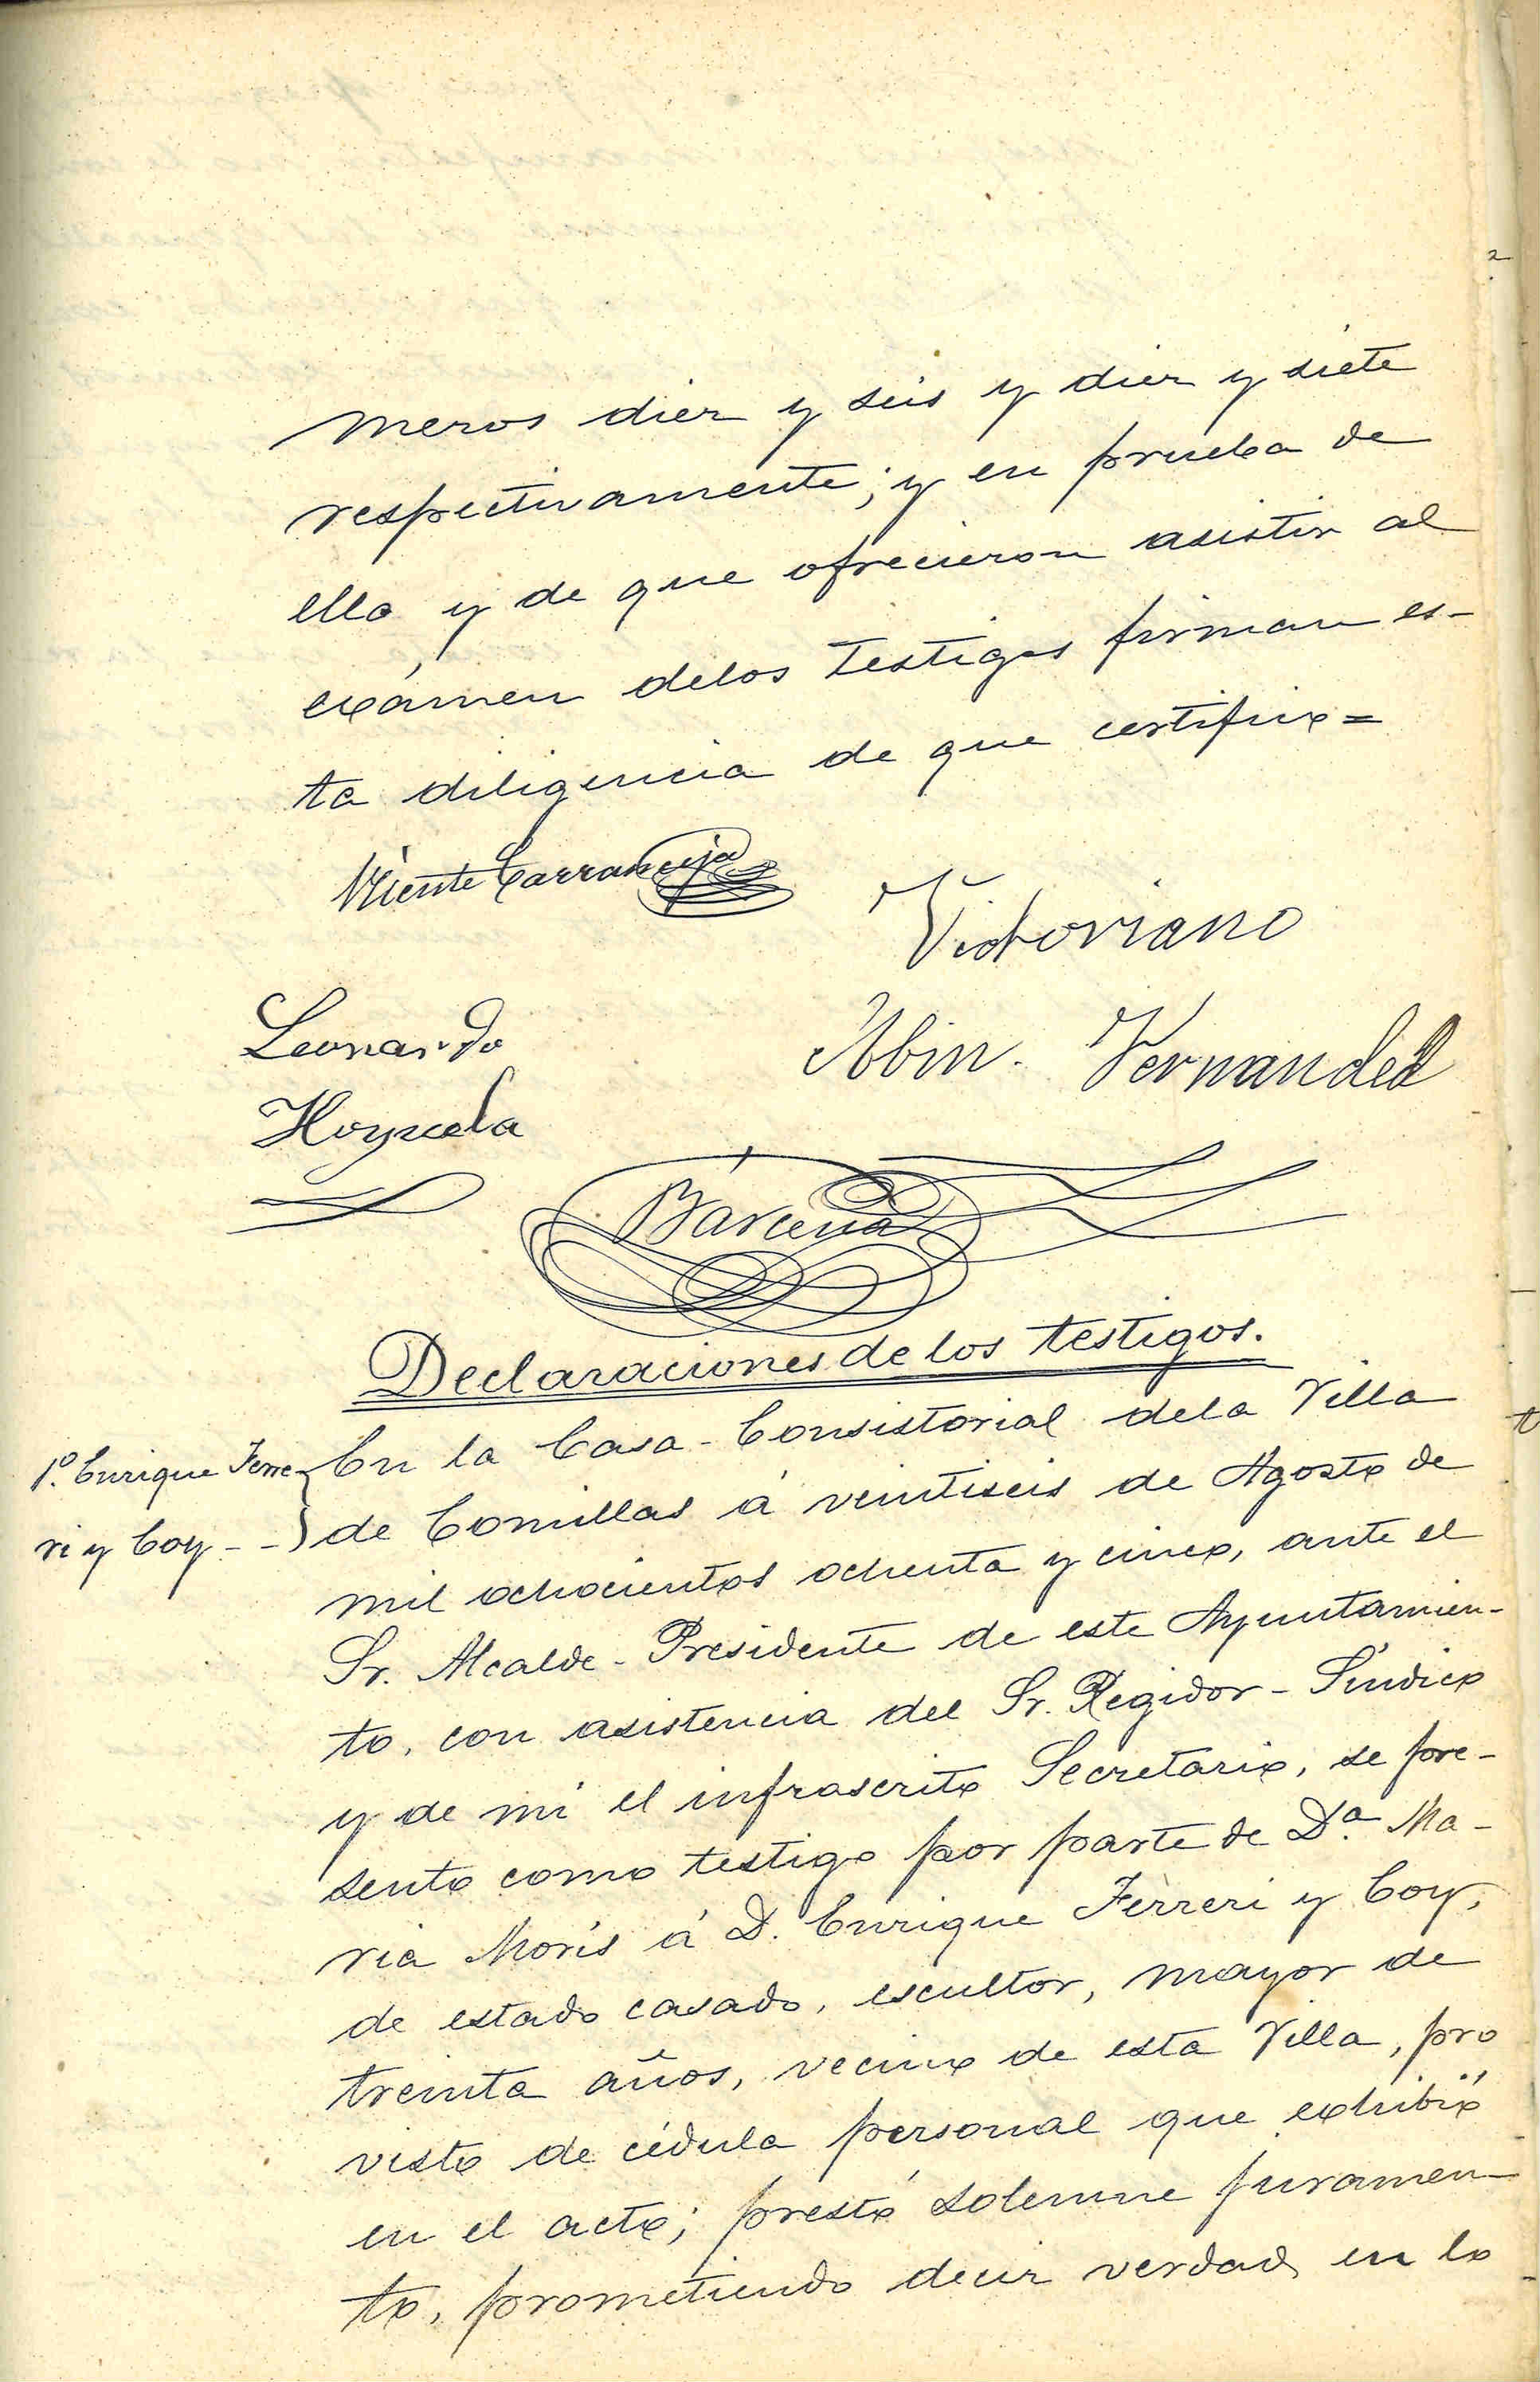 meros diez y seis y diez y siete
respectivamente; y en prueba de
ello y de que ofrecieron asistir al
exámen delos testigos firman es-
ta diligencia de que certifico =
Vicente Carranceja
Victoriano
Leonardo
Abin. Fernandez
Hoyuela
Bárcena
Declaraciones de los testigos.
1º. Enrique Ferre-
ri y Coy - -
En la Casa-Consistorial dela Villa
de Comillas á veintiseis de Agosto de
mil ochocientos ochenta y cinco, ante el
Sr. Alcalde-Presidente de este Ayuntamien-
to, con asistencia del Sr. Regidor-Síndico
y de mi el infrascrito Secretario, se pre-
sento como testigo por parte de Dª. Ma-
ria Morís á D. Enrique Ferreri y Coy,
de estado casado, escultor, mayor de
treinta años, vecino de esta Villa, pro
visto de cédula personal que exhibió
en el acto; prestó solemne juramen-
to, prometiendo decir verdad en lo